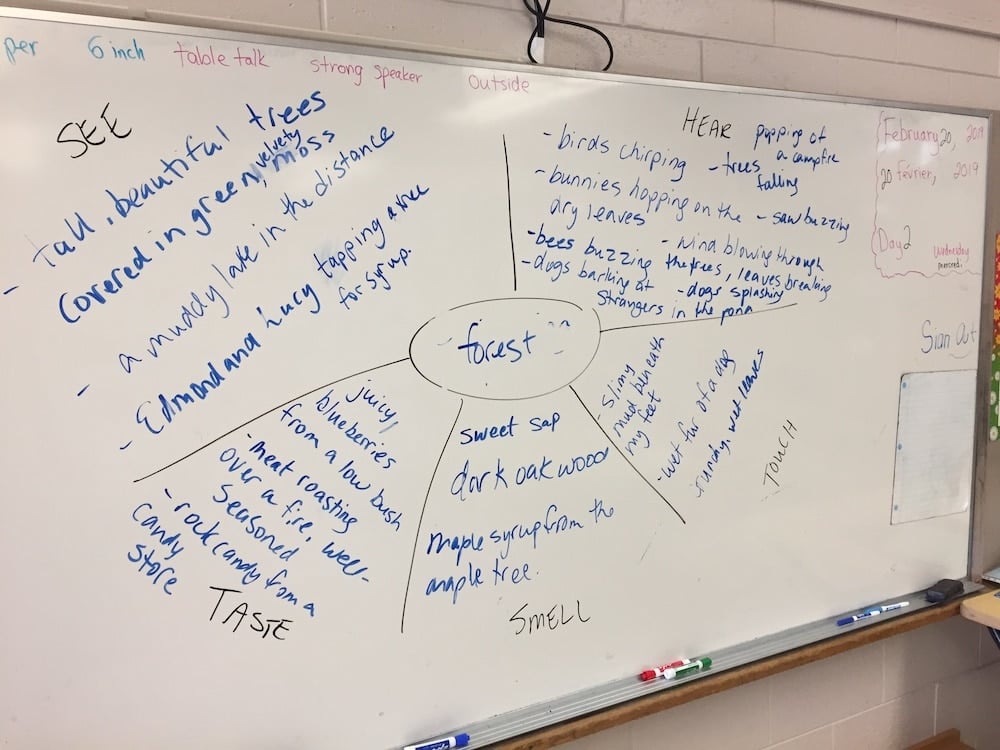 per 6 inch table talk strong speaker outside
SEE
- tall, beautiful trees
covered in green, velvety moss
- a muddy lake in the distance
- Edmond and Lucy tapping a tree
for syrup.
HEAR
- birds chirping
- bunnies hopping on the
dry leaves
- bees buzzing
- dogs barking at
strangers
popping of
a campfire
- trees
falling
- saw buzzing
- wind blowing through
the trees, leaves breaking
- dogs splashing
in the pond
February 20, 2019
20 février, 2019
Day 2
Wednesday
mercredi
Sign Out
forest
juicy,
blueberries
from a low bush
- meat roasting
over a fire, well-
seasoned
- rock candy from a
candy
store
TASTE
sweet sap
dark oak wood
maple syrup from the
maple tree.
SMELL
- slimy
mud beneath
my feet
- wet fur of a dog
wet leaves
TOUCH